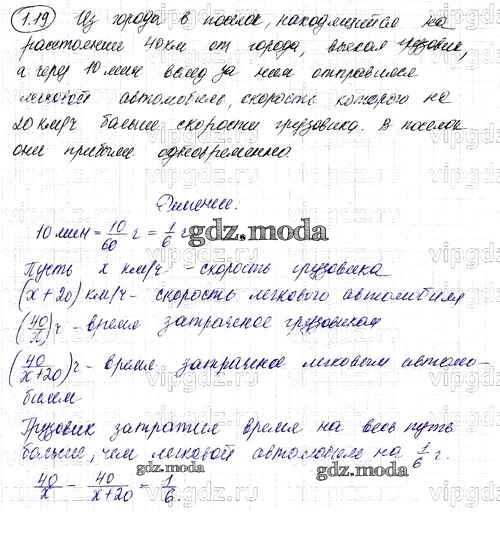 1.19 Из города в поселок, находящийся на
расстоянии 40 км от города, выехал грузовик,
а через 10 мин вслед за ним отправился
легковой автомобиль, скорость которого на
20 км/ч больше скорости грузовика. В поселок
они прибыли одновременно.
Решение:
10 мин = 10/60 ч = 1/6 ч
gdz.moda
Пусть x км/ч - скорость грузовика
(x + 20) км/ч - скорость легкового автомобиля
(40/x) ч - время затраченое грузовиком
(40/x+20) ч - время, затраченое легковым автомо-
билем
Грузовик затратил время на весь путь
больше, чем легковой автомобиль на 1/6 ч.
gdz.moda gdz.moda
40/x - 40/x+20 = 1/6.